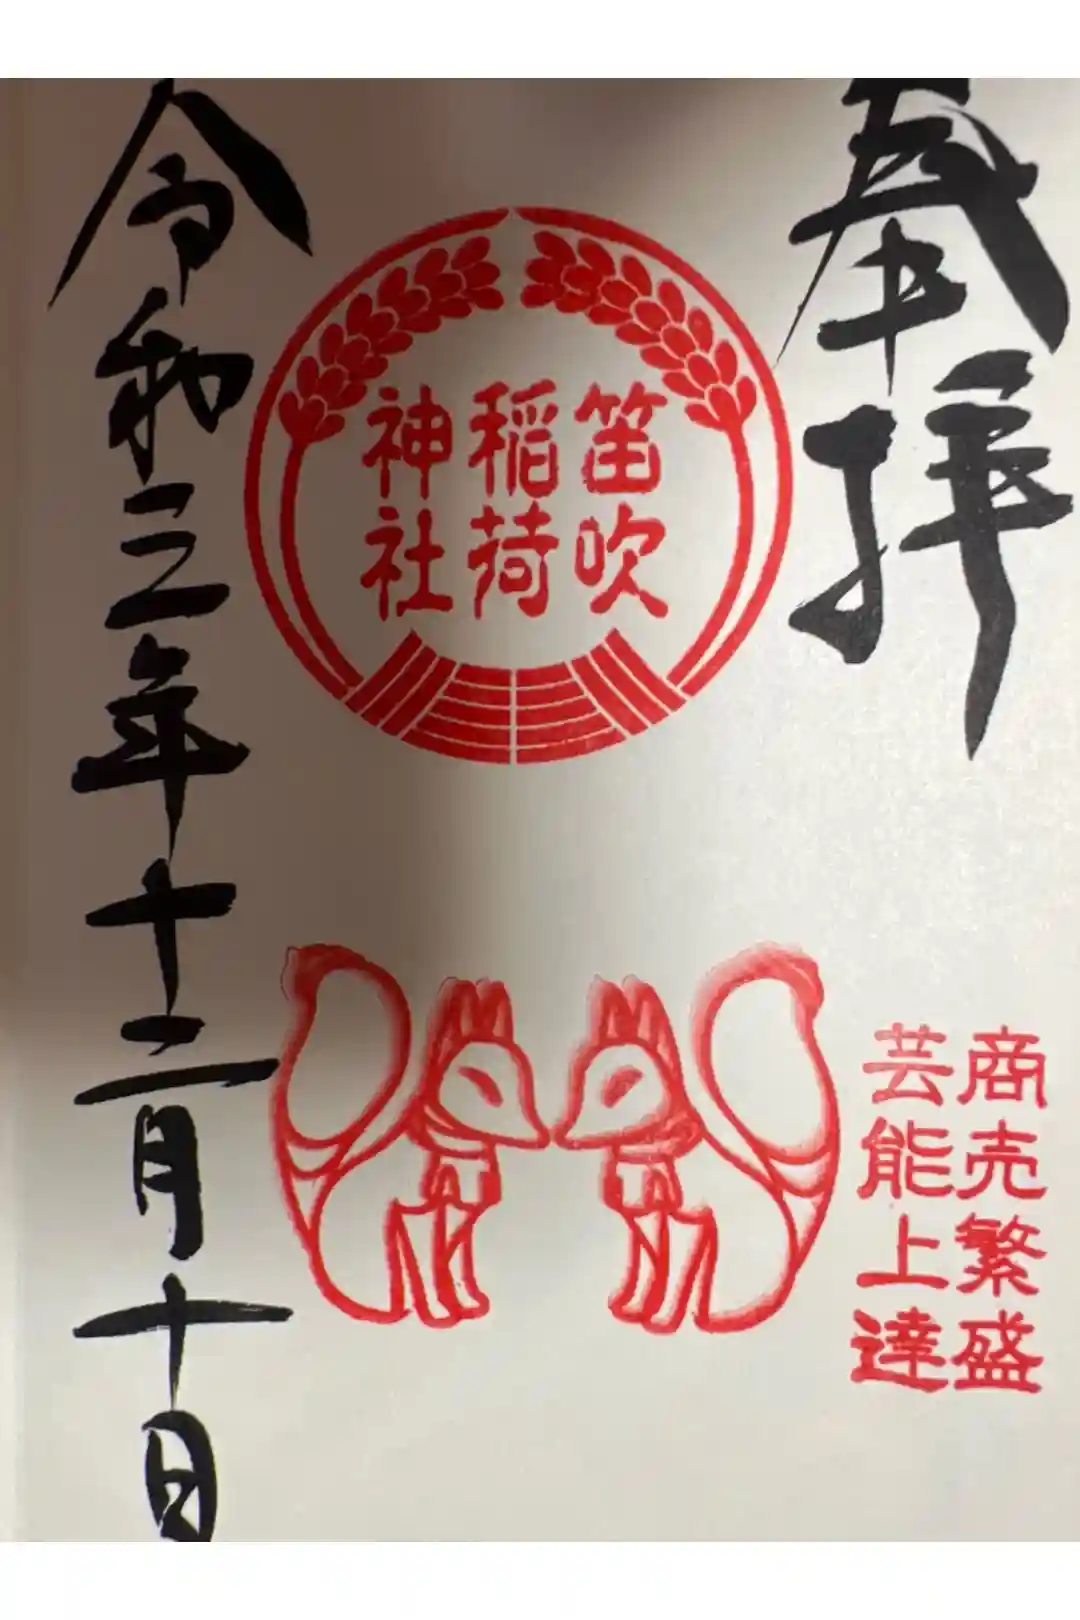 奉拝
商売繁盛
芸能上達
笛吹
稲荷
神社
令和三年十二月十日